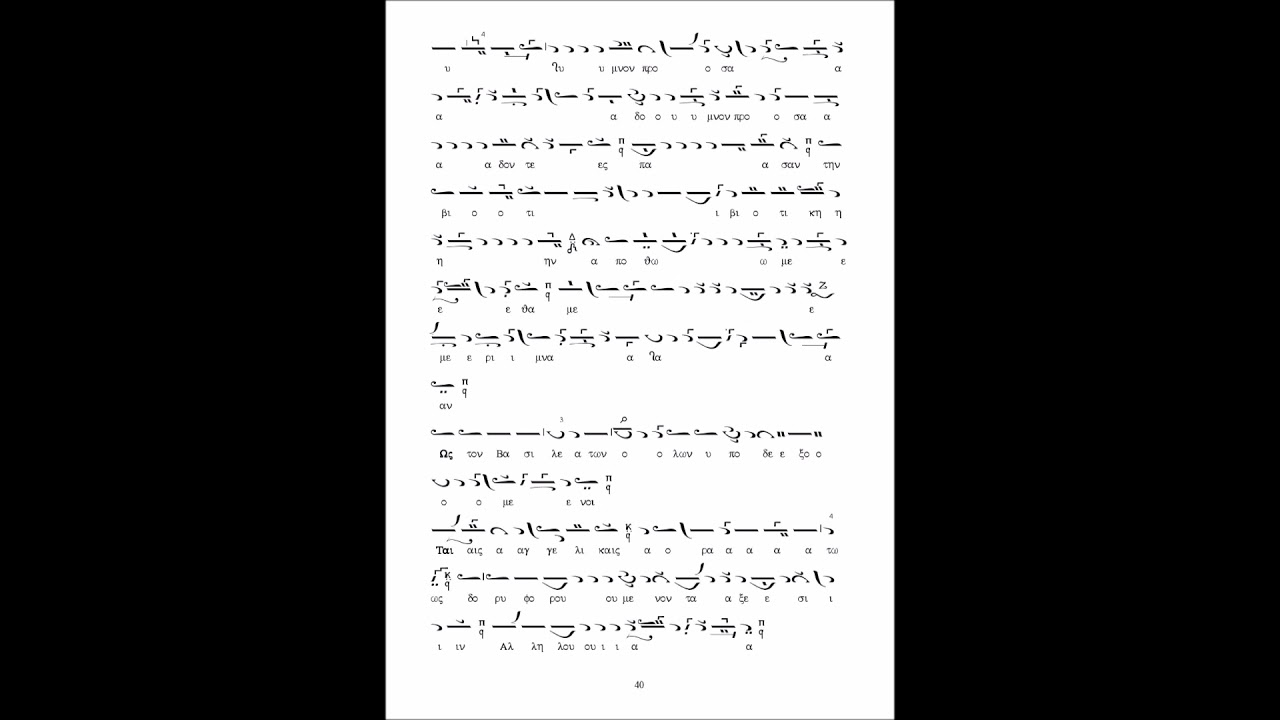 υ ὒυ υ μνον προ ο σα α
α α δο ο υ υ μνον προ ο σα α
α α δον τε ες πα α σαν την
βι ο ο τι ι βι ο τι κη η
η ην α πο θω ω με ε
ε ε θα με ε
με ε ρι ι μνα α α α
αν
Ως τον Βα σι λε α των ο ο λων υ πο δε ε ξο ο
ο ο με ε νοι
Ται αις α αγ γε λι καις α ο ρα α α α α τω
ως δο ρυ φο ρου ου με νον τα α ξε ε σι ι
ι ιν Αλ λη λου ου ι ι α α
40